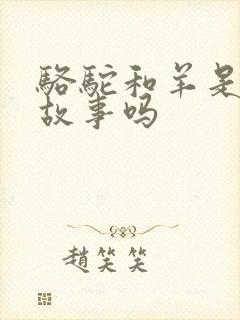 骆驼和羊是
故事吗
趙笑笑